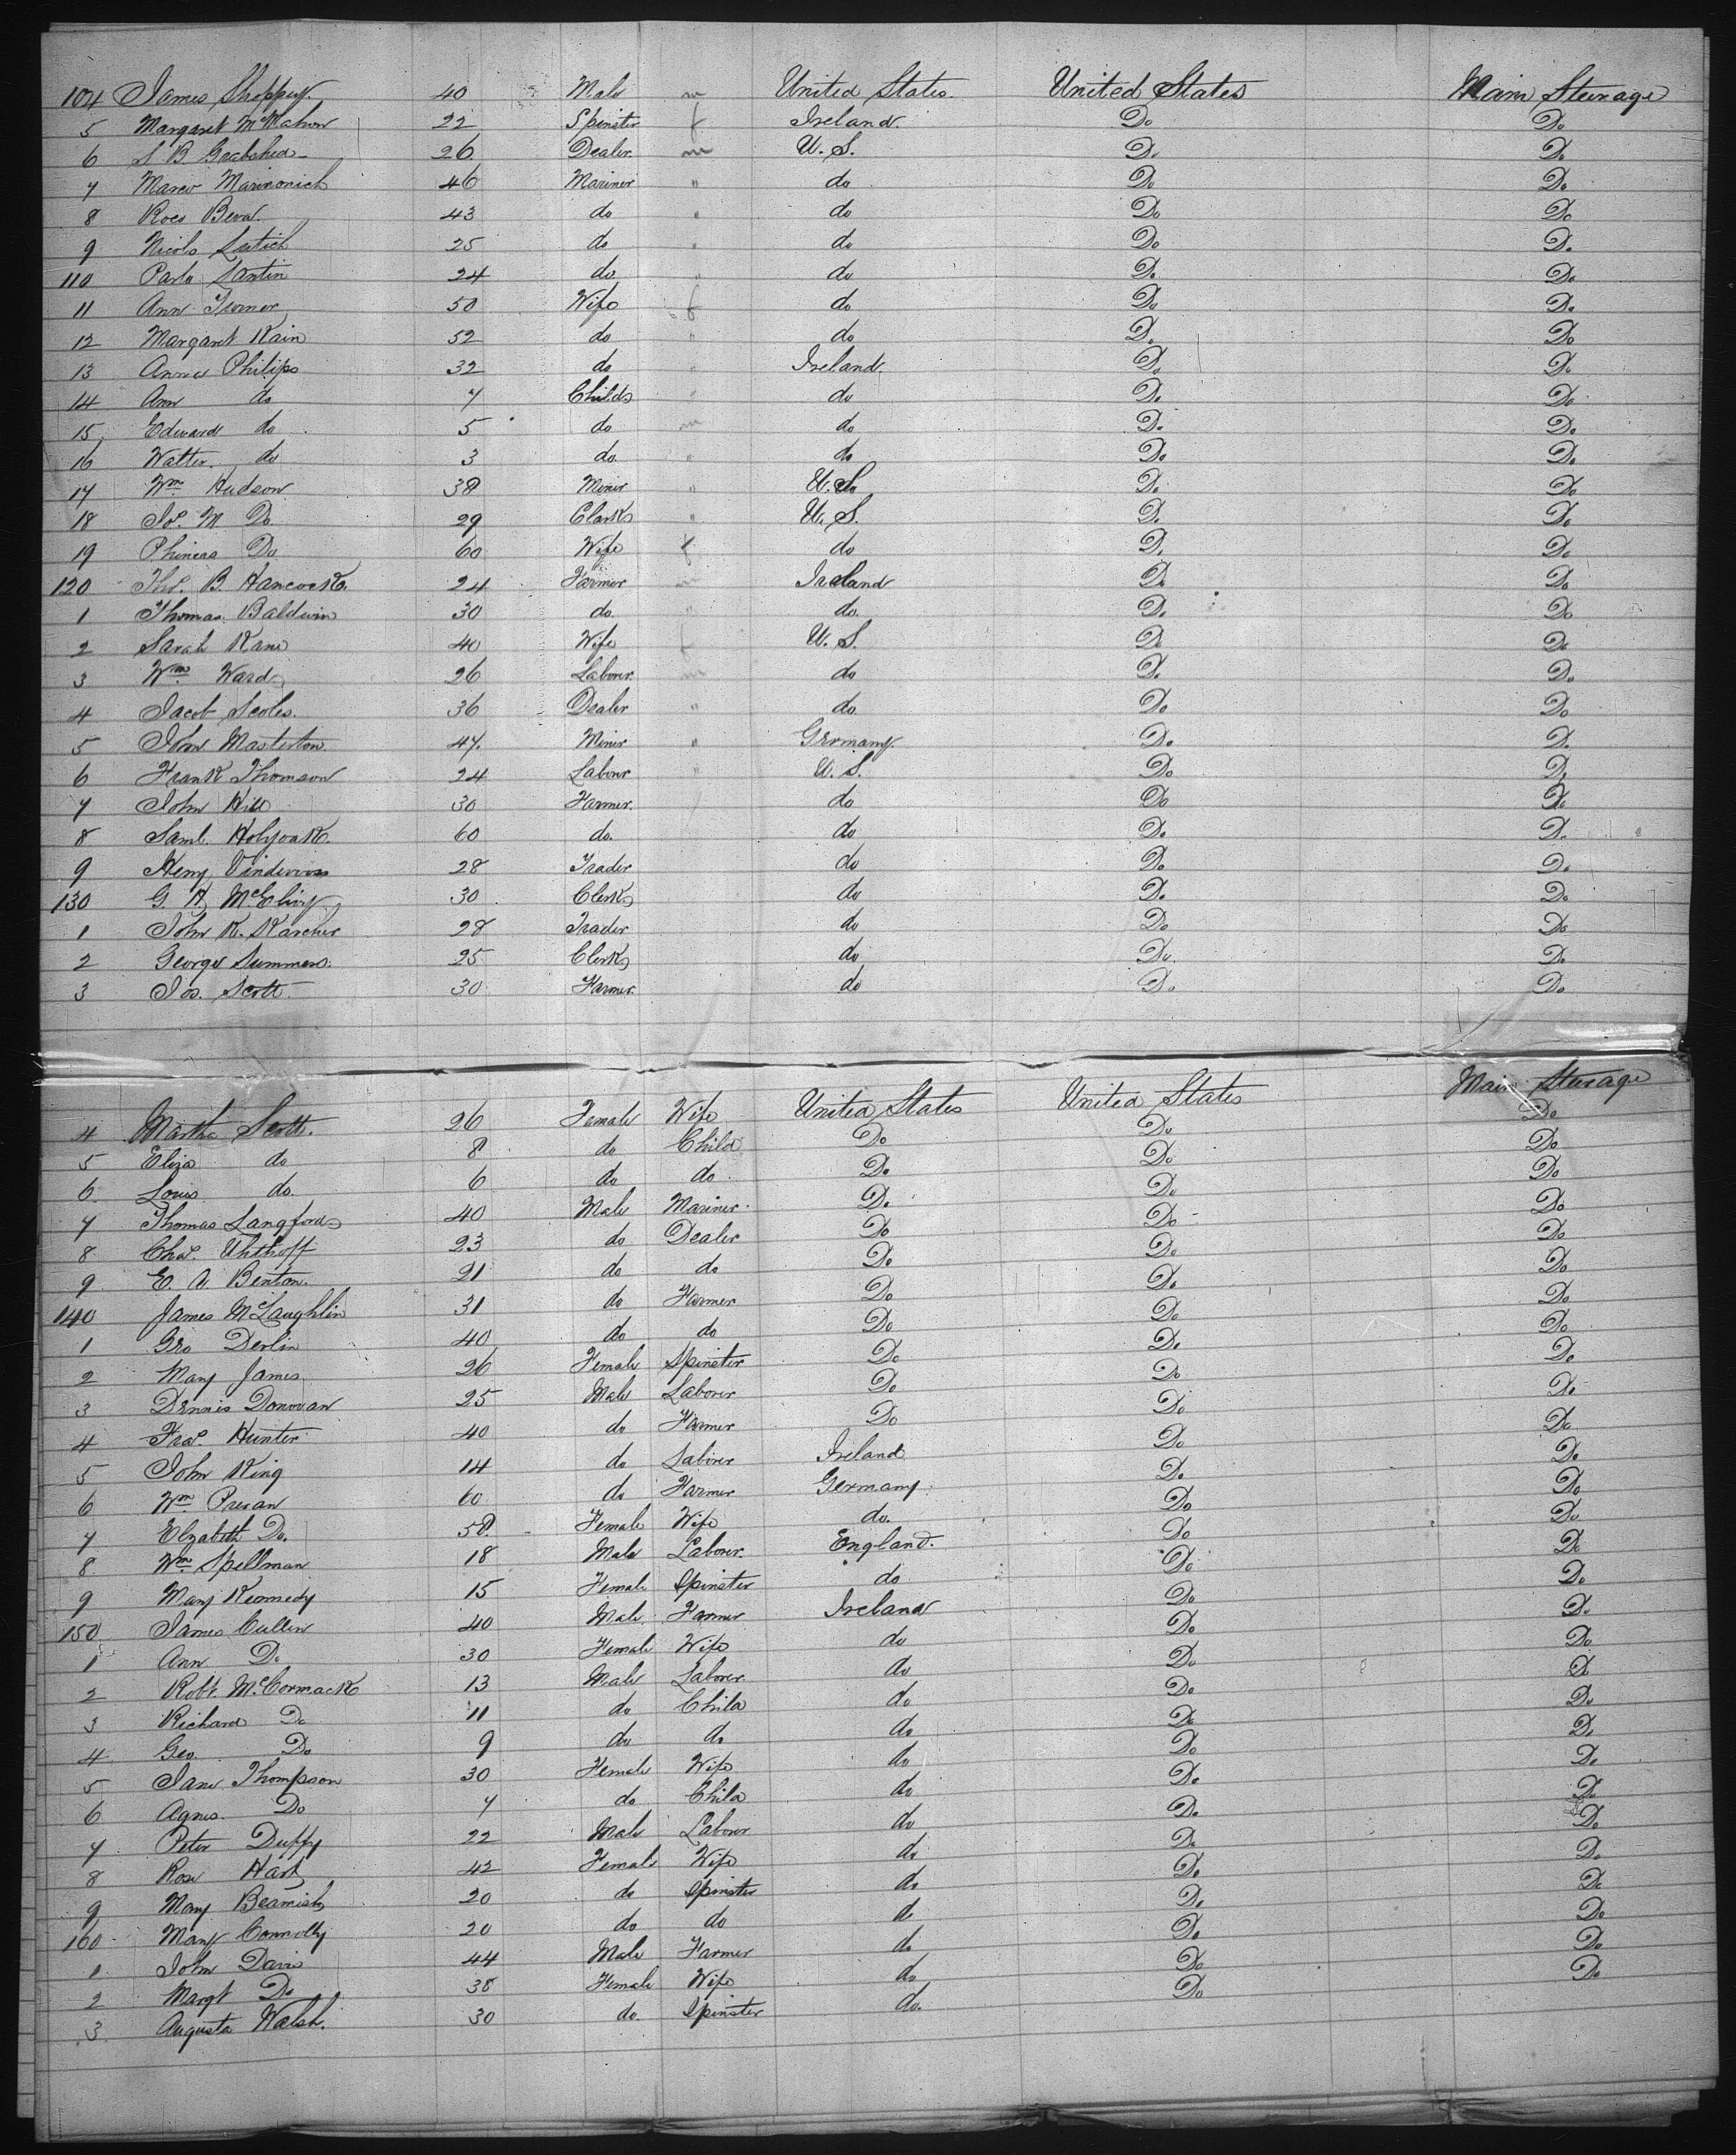 104 James Shoppy. 40 Male m United States. United States Main Sterage
5 Margaret McMahon 22 Spinster f Ireland. Do Do
6 S B Grabshed 26 Dealer. m U. S. Do Do
7 Marco Marinonich 46 Mariner " do Do Do
8 Roco Beva. 43 do " do Do Do
9 Nicolo Lutich 25 do " do Do Do
110 Parlo Santin 24 do " do Do Do
11 Ann Turner 50 Wife f do Do Do
12 Margaret Kain 52 do " do Do Do
13 Anna Philips 32 do " Ireland. Do Do
14 Ann do 7 Child " do Do Do
15 Edward do 5 do m do Do Do
16 Walter. do 3 do. " do Do Do
17 Wm Hudson 38 Miner " U. S. Do Do
18 Jos. M Do 29 Clark " U. S. Do Do
19 Phineas Do 60 Wife f do Do Do
120 Thos. B. Hancock. 24 Farmer m Ireland Do Do
1 Thomas Baldwin 30 do. " do. Do Do
2 Sarah Kane 40 Wife f U. S. Do Do
3 Wm Ward 26 Laborer. m do Do Do
4 Jacob Scoles. 36 Dealer " do Do Do
5 John Masterton 47. Miner " Germany Do Do
6 Frank Thomson 24 Laborer " U. S. Do Do
7 John Hill 30 Farmer. do Do Do
8 Saml. Holyoak. 60 do. do Do Do
9 Heny 28 Trader do Do Do
130 G. H. McElroy 30 Clerk do Do Do
1 John K. Karcher 28 Trader do Do Do
2 George Summers. 25 Clerk do Do Do
3 Jos. Scott 30 Farmer. do Do Do
Main Sterage
4 Martha Scott. 26 Female Wife United States United States Do
5 Eliza do 8 do Child Do Do Do
6 Louis do. 6 do do Do Do Do
7 Thomas Langford 40 Male Mariner. Do Do Do
8 Chas. Uhthoff 23 do Dealer Do Do Do
9 E. A. Benton. 21 do do Do Do Do
140 James McLaughlin 31 do Farmer Do Do Do
1 Geo Derlin 40 do do Do Do Do
2 Mary James 26 Female Spinster Do Do Do
3 Dennis Donovan 25 Male Laborer Do Do Do
4 Fras. Hunter 40 do Farmer Do Do Do
5 John King 14 do Laborer Ireland Do Do
6 Wm Presan 60 do Farmer Germany. Do Do
7 Elzabeth Do. 58. Female Wife do. Do Do
8 Wm Spellman 18 Male Laborer. England. Do Do
9 Mary Kennedy 15 Female Spinster do Do Do
150 James Cullen 40 Male Farmer Ireland Do Do
1 Ann Do 30 Female Wife do Do Do
2 Robt. McCormack 13 Male Laborer. do Do Do
3 Richard Do 11 do Child do Do Do
4 Geo. Do 9 do do do Do Do
5 Jane Thompson 30 Female Wife do Do Do
6 Agnes. Do 7 do Child do Do Do
7 Peter Duffy 22 Male Laborer do Do Do
8 Rose Hart 42 Female Wife do Do Do
9 Mary Beamish 20 do Spinster do Do Do
160 Mary Connolly 20 do do do Do Do
1 John Davis 44 Male Farmer do Do Do
2 Margt Do 38 Female Wife do Do Do
3 Augusta Walsh. 30 do. Spinster do. Do